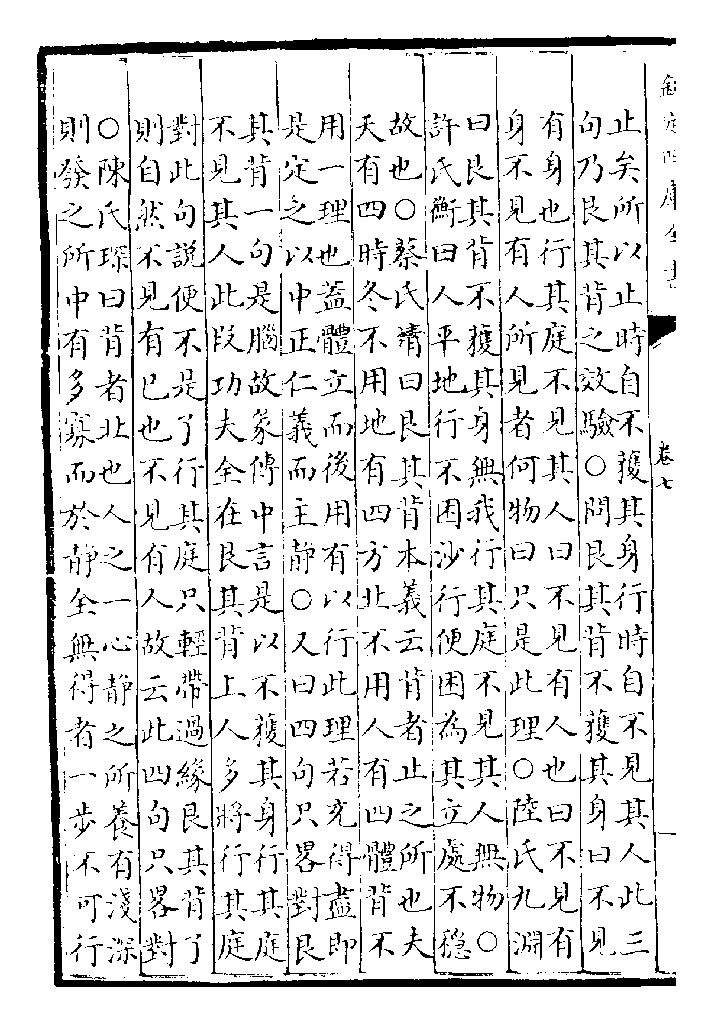 欽定四庫全書
卷七
止矣所以止時自不獲其身行時自不見其人此三
句乃艮其背之效驗○問艮其背不獲其身曰不見
有身也行其庭不見其人曰不見有人也曰不見有
身不見有人所見者何物曰只是此理○陸氏九淵
曰艮其背不獲其身無我行其庭不見其人無物○
許氏衡曰人平地行不困沙行便困為其立處不穩
故也○蔡氏清曰艮其背本義云背者止之所也夫
天有四時冬不用地有四方北不用人有四體背不
用一理也蓋體立而後用有以行此理若充得盡即
是定之以中正仁義而主靜○又曰四句只畧對艮
其背一句是腦故彖傳中言是以不獲其身行其庭
不見其人此段功夫全在艮其背上人多將行其庭
對此句說便不是了行其庭只輕帶過緣艮其背了
則自然不見有已也不見有人故云此四句只畧對
○陳氏琛曰背者北也人之一心靜之所養有淺深
則發之所中有多寡而於靜全無得者一步不可行